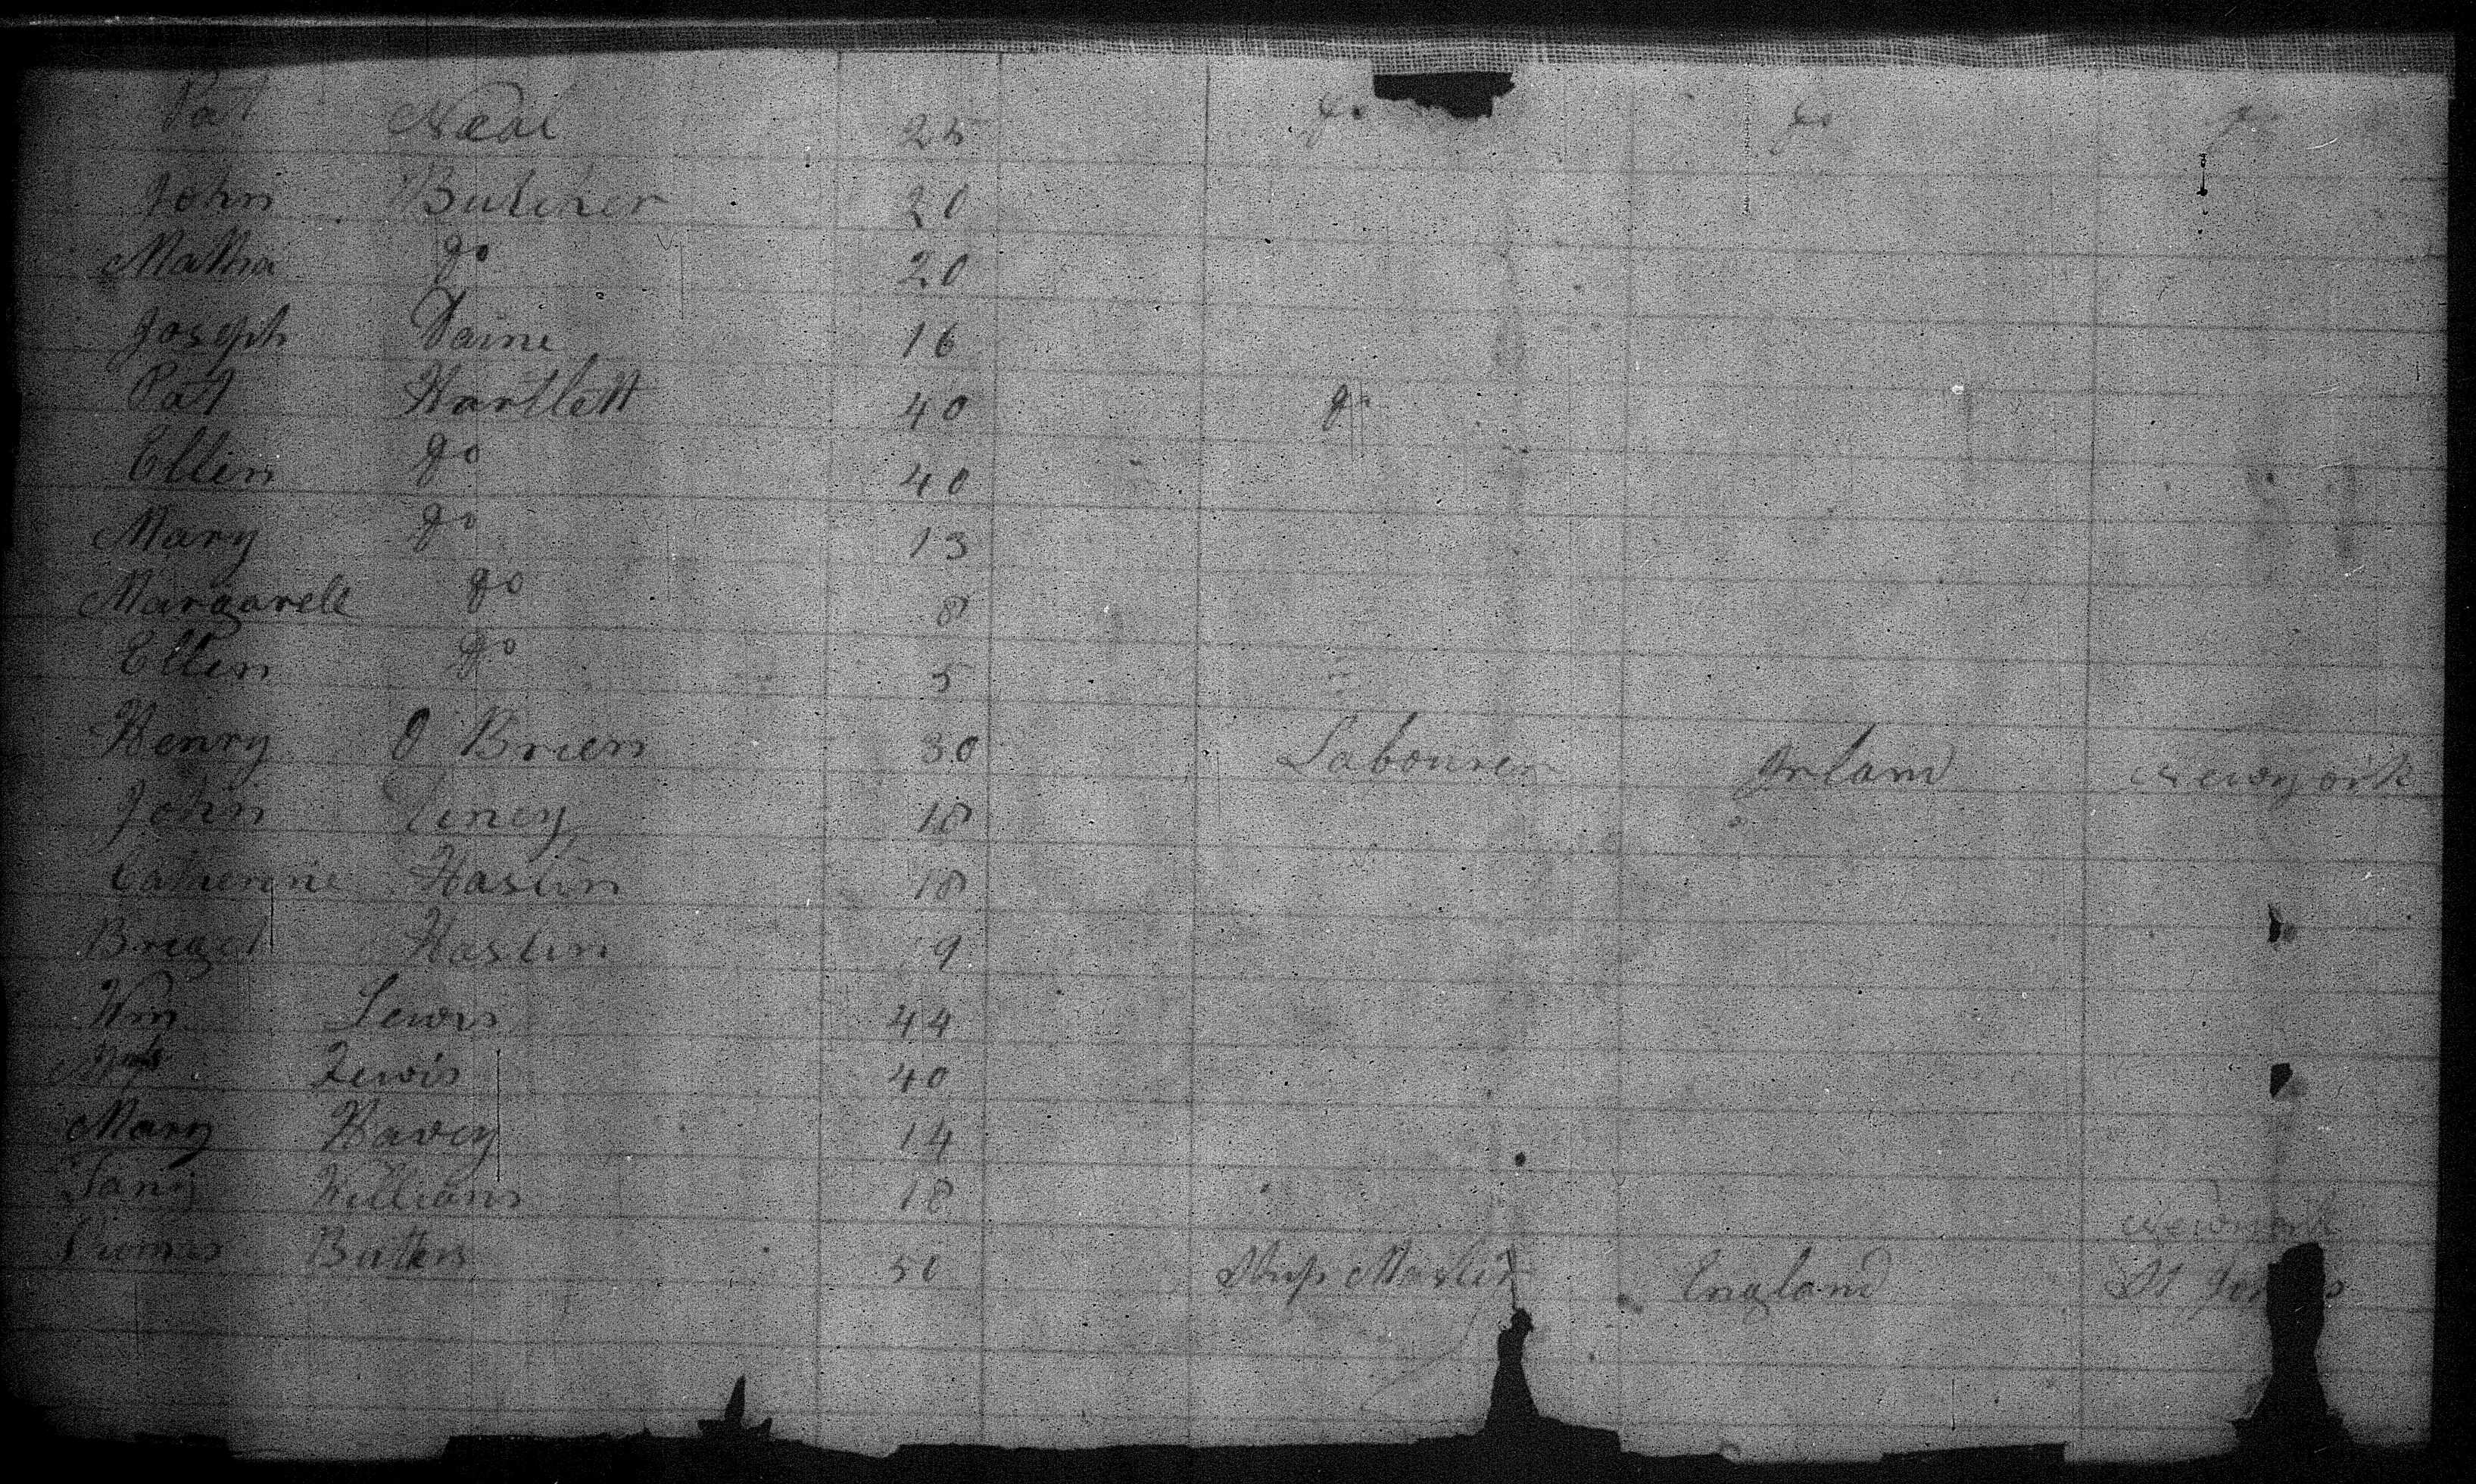 Pat Neal 25 do do do
John Butcher 20
Mathia do 20
Joseph Daine 16
Pat Hartlett 40 do
Ellen do 40
Mary do 13
Margarett do 8
Ellen do 5
Henry O Brien 30 Labourer Irland Newyork
John 18
Catherine Haslin 18
Briget Haslin 9
Wm Lewis 44
Lewis 40
Mary Havey 14
Jany Williams 18 Newyork
Thomas 50 Ship Master England St